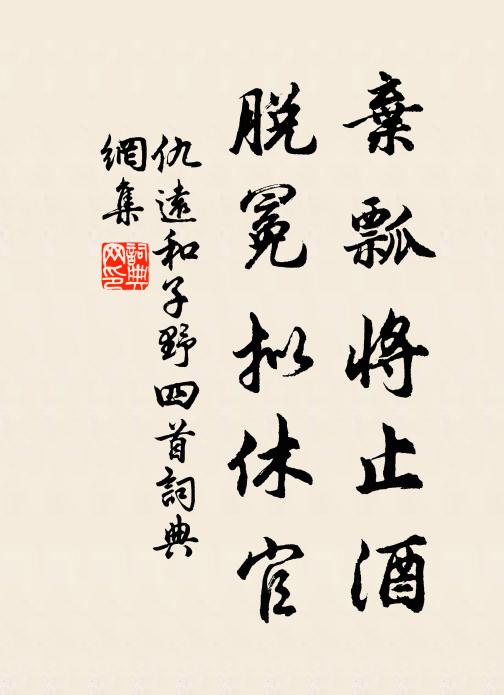 棄瓢將止酒
脫冕擬休官
仇遠和子野四首詞典
網集
詞典
网印